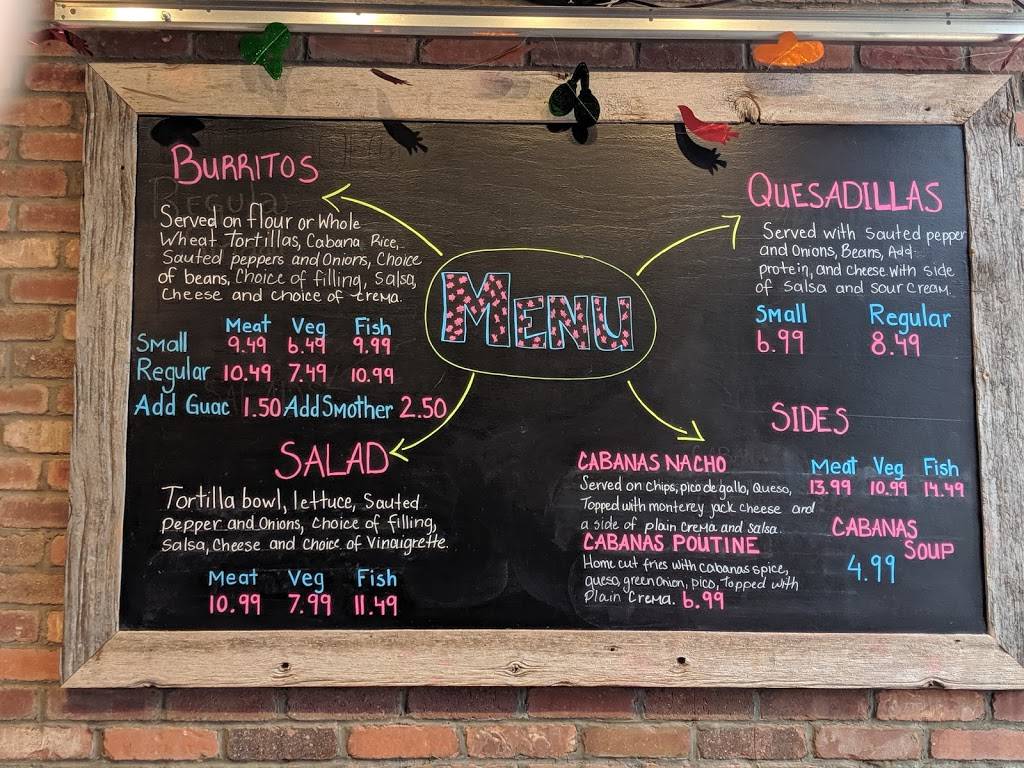 Menu
Burritos
Served on flour or Whole
Wheat Tortillas, Cabana Rice,
Sauted peppers and Onions, Choice
of beans, Choice of filling, Salsa,
Cheese and choice of crema.
Meat Veg Fish
Small 9.49 6.49 9.99
Regular 10.49 7.49 10.99
Add Guac 1.50 Add Smother 2.50
SALAD
Tortilla bowl, lettuce, Sauted
Pepper and Onions, Choice of filling,
Salsa, Cheese and Choice of Vinaigrette.
Meat Veg Fish
10.99 7.99 11.49
QUESADILLAS
Served with sauted pepper
and Onions, Beans, Add
protein, and cheese with side
of salsa and sour cream.
Small Regular
6.99 8.49
SIDES
CABANAS NACHO Meat Veg Fish
13.99 10.99 14.49
Served on chips, pico de gallo, Queso,
Topped with monterey jack cheese and
a side of plain crema and salsa.
CABANAS POUTINE
Home cut fries with cabanas spice,
queso, green onion, pico, topped with
Plain Crema. 6.99
CABANAS
SOUP
4.99